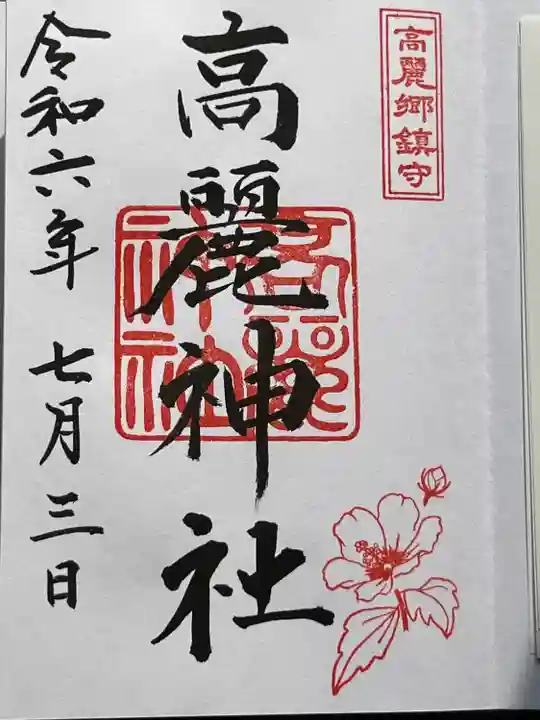 高麗郷鎮守
高麗神社
令和六年 七月三日
高麗
神社